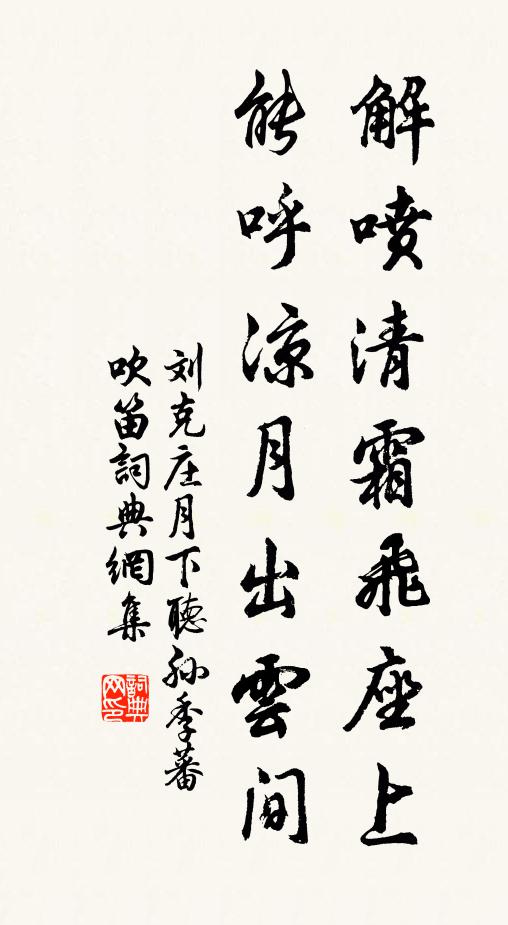 解噴清霜飛座上
能呼涼月出雲间
刘克庄月下聽孙季蕃
吹笛詞典網集
詞典网印